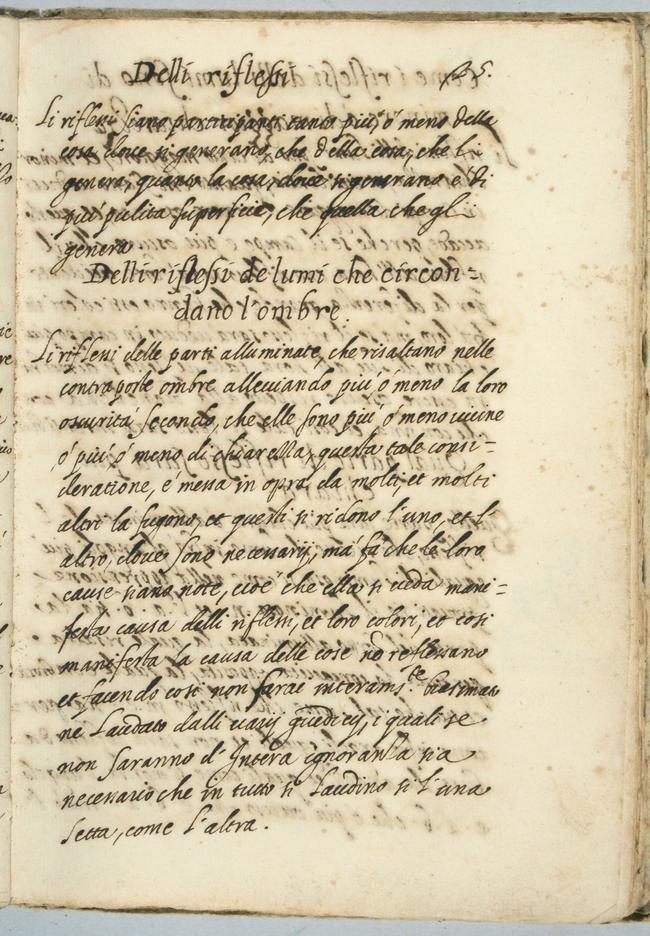 Delli riflessi
25.
Li riflessi siano participanti tanto piu, ó meno della
cosa, doue si generano, che della cosa, che li
genera, quanto la cosa, doue si generano é di
piu pulita superficie, che quella che gli
genera
Delli riflessi de lumi che circon=
dano l'ombre.
Li riflessi delle parti alluminate, che risaltano nelle
contraposte ombre alleuiando piu, ó meno la loro
oscuritá secondo, che elle sono piu ó meno uicine
ó piu ó meno di chiarezza, questa tale consi=
deratione, é messa in opra da molti, et molti
altri la fugono, et questi si ridono l'uno, et l'
altro, doue sono necessarij, má fá che le loro
cause siano note, cioé che ella si ueda mani=
festa causa delli riflessi, et loro colori, et cosi
manifesta la causa delle cose nō reflessano
et facendo cosi non sarai interam.te biasimato
ne Laudato dalli uarij giudicij, i quali se
non saranno d'Intera ignoranza sia
necessario che in tutto ti Laudino si l'una
setta, come l'altra.